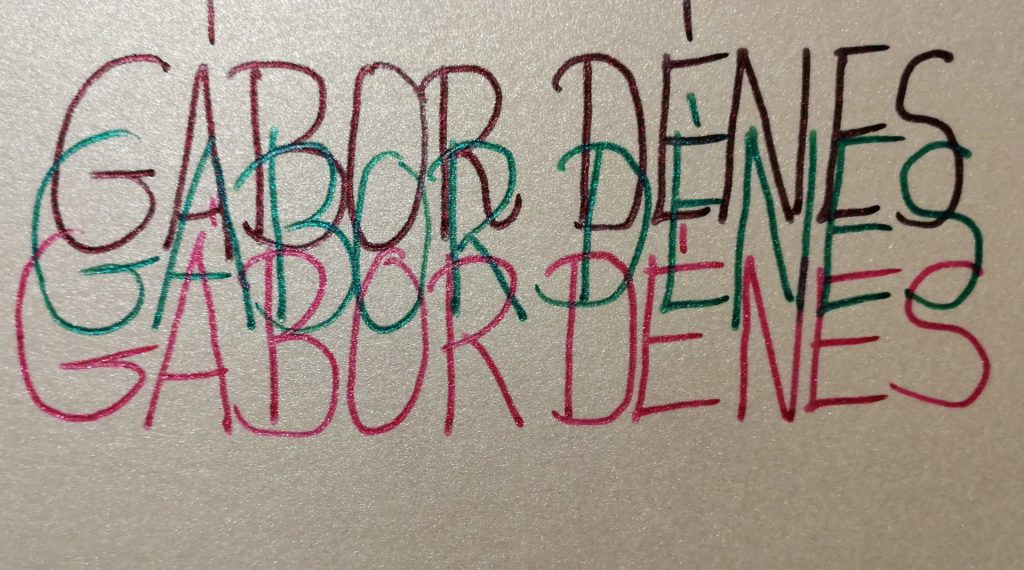 GÁBOR DÉNES
GÁBOR DÉNES
GÁBOR DÉNES